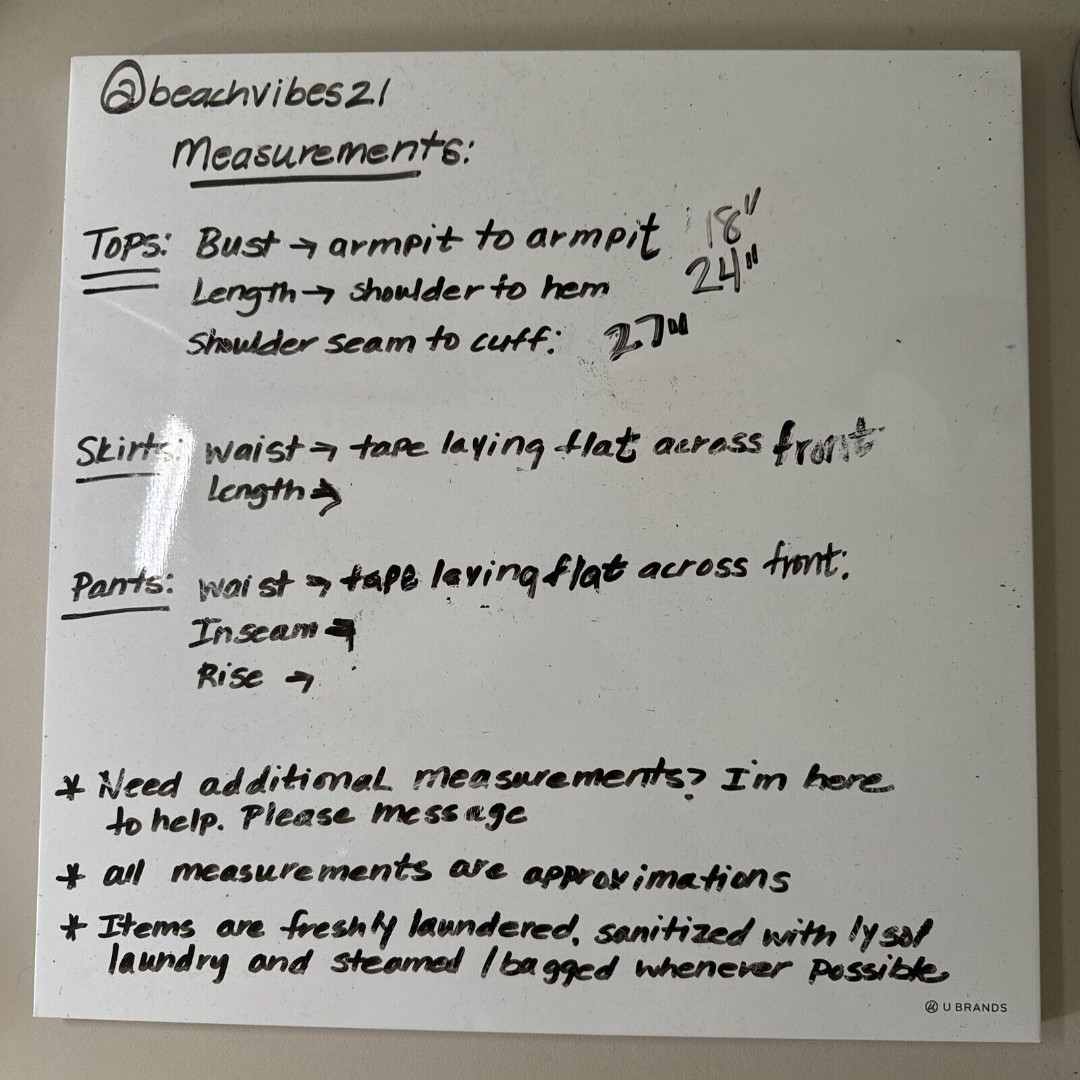 @beachvibes21
Measurements:
Tops: Bust → armpit to armpit 18"
Length → shoulder to hem 24"
Shoulder seam to cuff: 27"
Skirts: waist → tape laying flat across front
Length →
Pants: waist → tape laying flat across front:
Inseam →
Rise →
* Need additional measurements? I'm here
to help. Please message
* all measurements are approximations
* Items are freshly laundered, sanitized with lysol
laundry and steamed / bagged whenever possible
U BRANDS